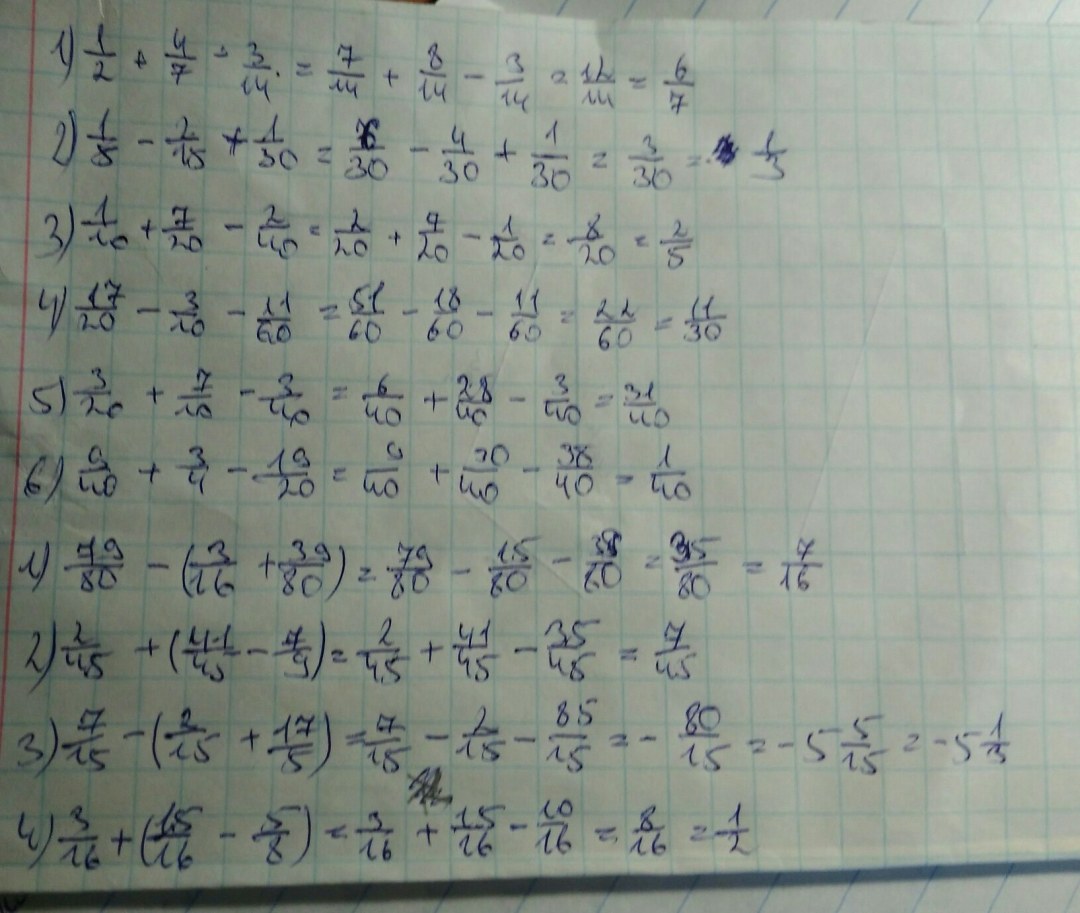 1) 1/2 + 4/7 - 3/14 = 7/14 + 8/14 - 3/14 = 12/14 = 6/7
2) 1/5 - 2/15 + 1/30 = 6/30 - 4/30 + 1/30 = 3/30 = 1/3
3) 1/10 + 7/20 - 2/40 = 2/20 + 7/20 - 1/20 = 8/20 = 2/5
4) 17/20 - 3/10 - 11/60 = 51/60 - 18/60 - 11/60 = 22/60 = 11/30
5) 3/20 + 7/10 - 3/40 = 6/40 + 28/40 - 3/40 = 31/40
6) 9/40 + 3/4 - 19/20 = 9/40 + 30/40 - 38/40 = 1/40
1) 79/80 - (3/16 + 39/80) = 79/80 - 15/80 - /80 = 35/80 = 7/16
2) 2/45 + (41/45 - 7/9) = 2/45 + 41/45 - 35/45 = 7/45
3) 7/15 - (2/15 + 17/5) = 7/15 - 2/15 - 85/15 = - 80/15 = - 5 5/15 = - 5 1/3
4) 3/16 + (15/16 - 5/8) = 3/16 + 15/16 - 10/16 = 8/16 = 1/2